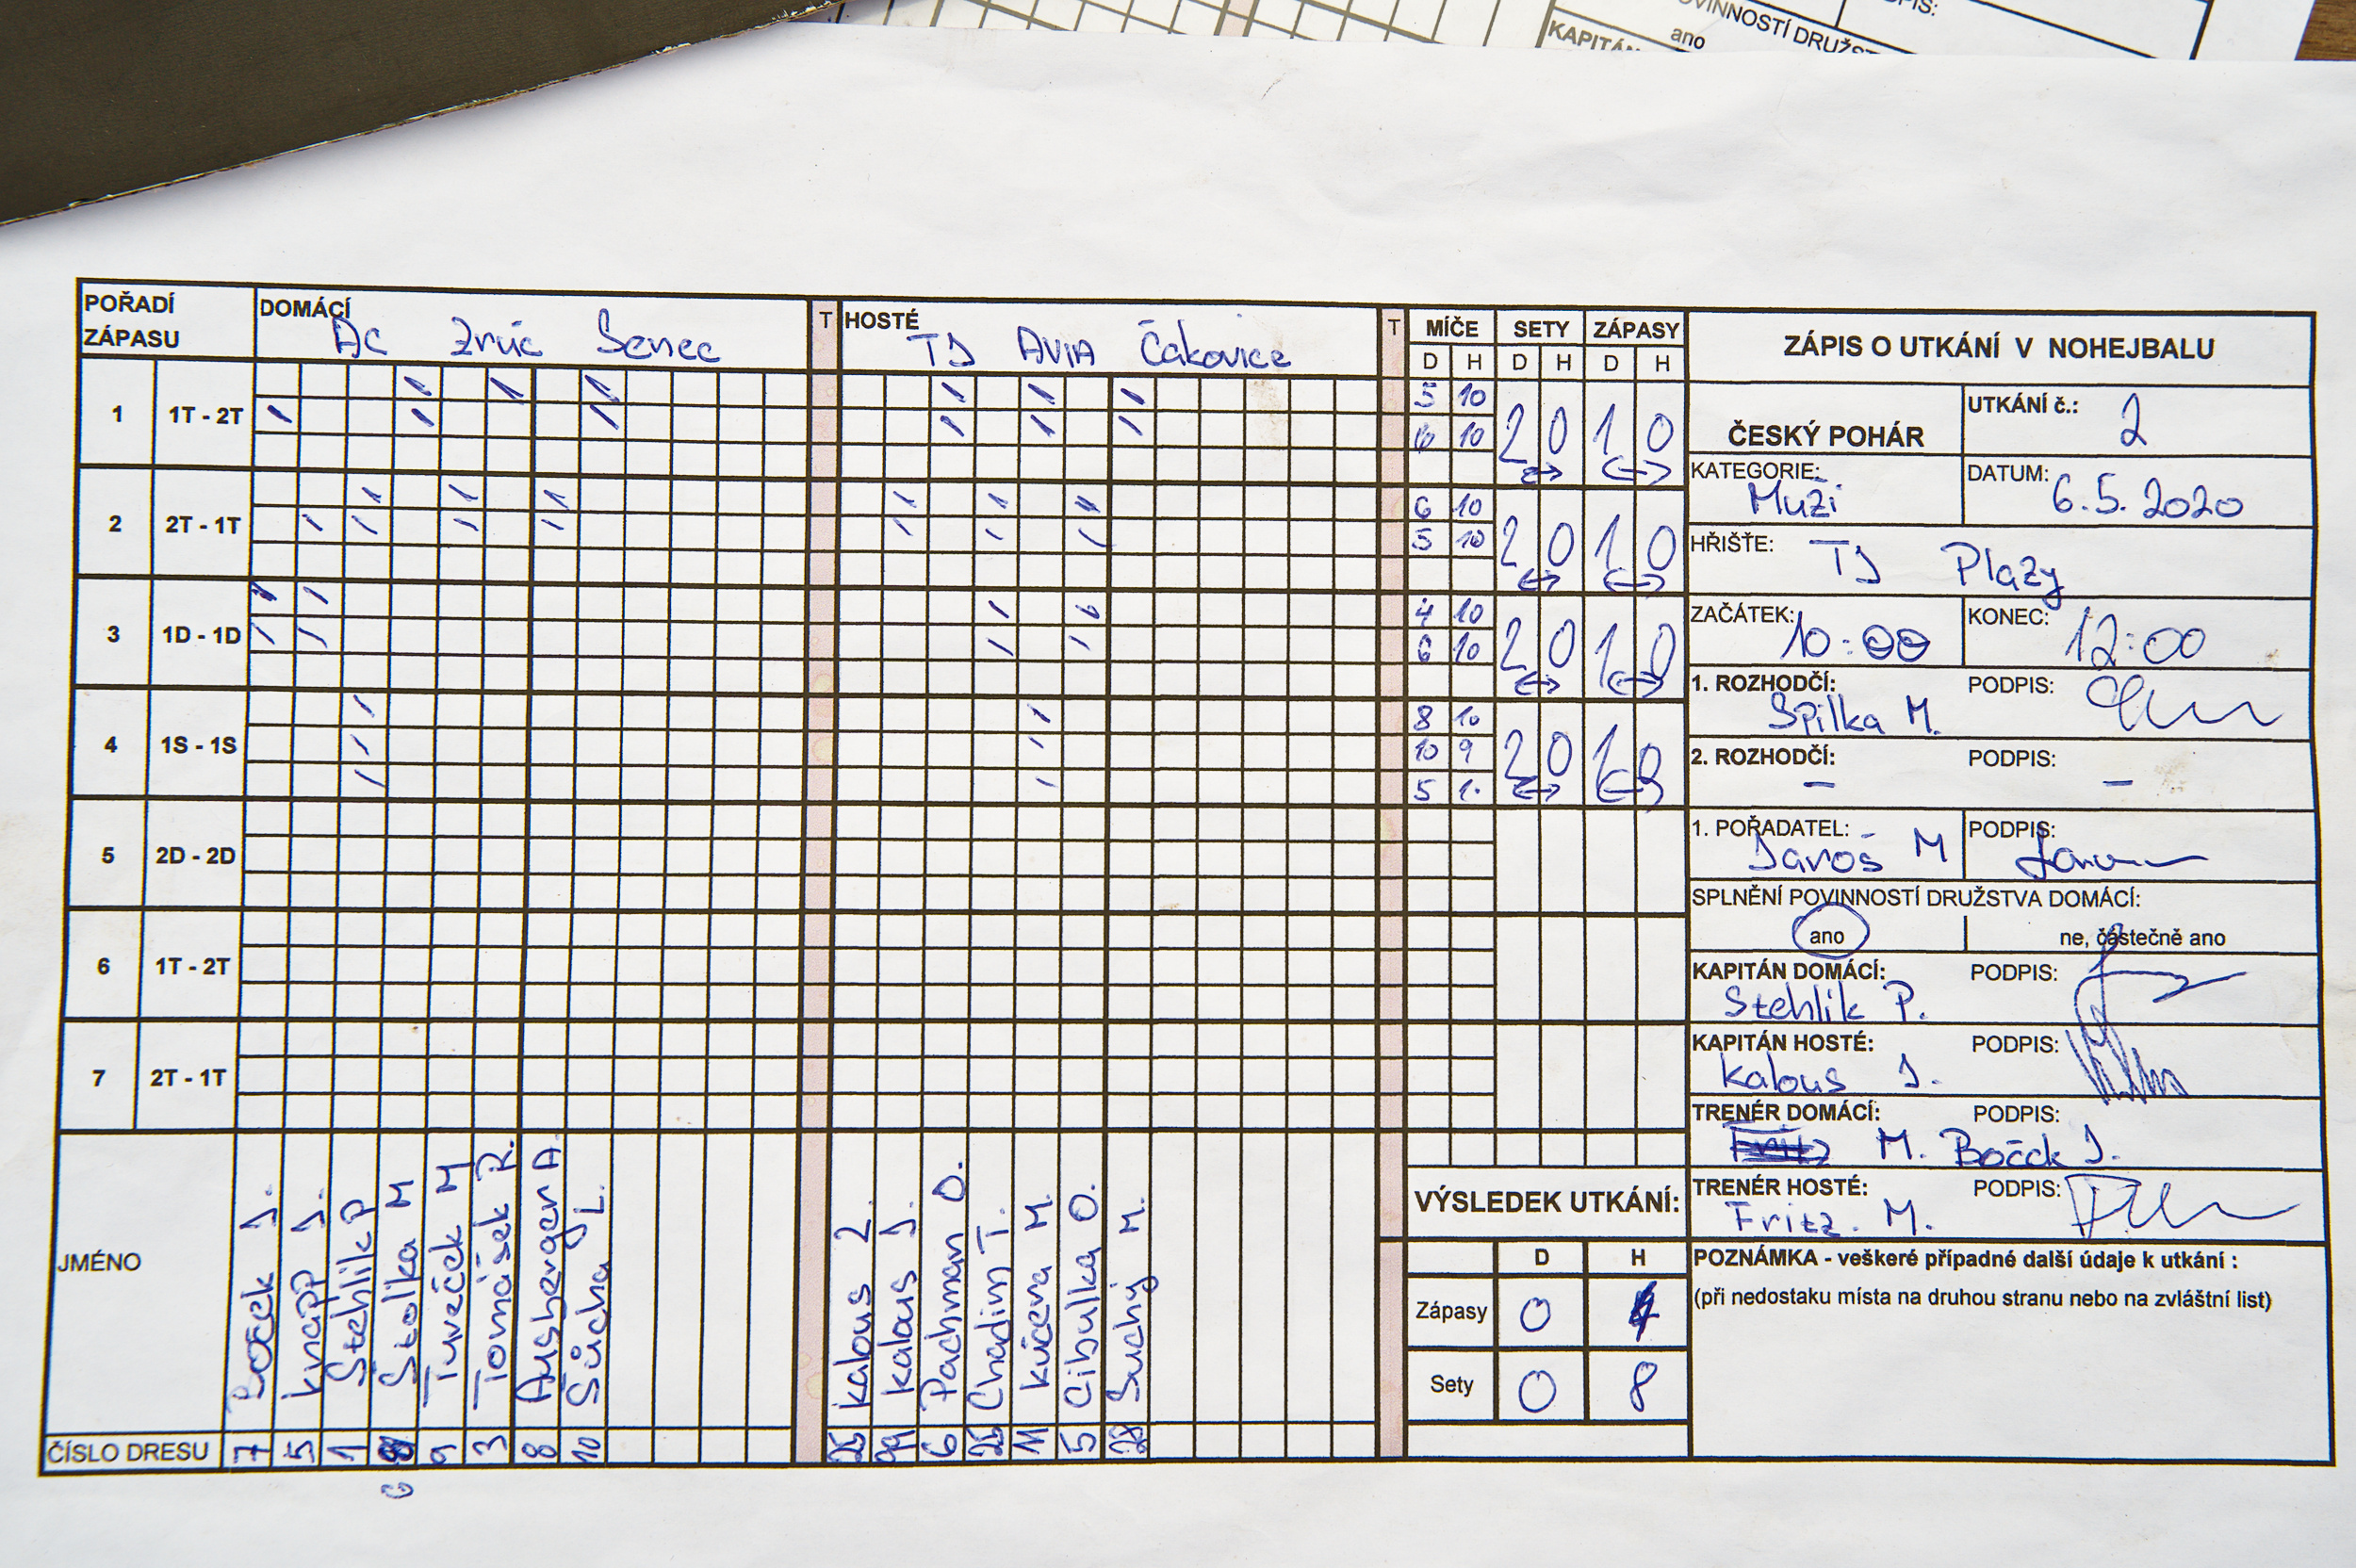 PIS:
OVINNOSTÍ DRUŽST
ano
KAPITÁN
POŘADÍ ZÁPASU
DOMÁCÍ AC Zruč Senec
T
HOSTÉ TJ AVIA Čakovice
T
MÍČE SETY ZÁPASY
D H D H D H
1 1T - 2T 5 10 2 0 1 0
6 10
2 2T - 1T 6 10 2 0 1 0
5 10
3 1D - 1D 4 10 2 0 1 0
6 10
4 1S - 1S 8 10 2 0 1 0
10 9
5
5 2D - 2D
6 1T - 2T
7 2T - 1T
JMÉNO
Boček J.
Knapp J.
Stehlik P
Stolka M
Tuveček M
Tomášek R.
Ausberger A.
Sůcha L.
Kalous Z.
Kalous J.
Pachman O.
Chadim T.
Kučera M.
Cibulka O.
Suchý M.
ČÍSLO DRESU 7 5 1 6 9 3 8 10 6 11 5
VÝSLEDEK UTKÁNÍ:
D H
Zápasy 0 4
Sety 0 8
ZÁPIS O UTKÁNÍ V NOHEJBALU
ČESKÝ POHÁR
UTKÁNÍ č.: 2
KATEGORIE: Muži
DATUM: 6.5.2020
HŘIŠTE: TJ Plazy
ZAČÁTEK: 10:00
KONEC: 12:00
1. ROZHODČÍ: Spilka M. PODPIS:
2. ROZHODČÍ: – PODPIS: –
1. POŘADATEL: Jaroš M PODPIS:
SPLNĚNÍ POVINNOSTÍ DRUŽSTVA DOMÁCÍ:
ano ne, částečně ano
KAPITÁN DOMÁCÍ: PODPIS:
Stehlik P.
KAPITÁN HOSTÉ: PODPIS:
Kalous J.
TRENÉR DOMÁCÍ: PODPIS:
Fritz M. Boček J.
TRENÉR HOSTÉ: PODPIS:
Fritz. M.
POZNÁMKA - veškeré případné další údaje k utkání :
(při nedostaku místa na druhou stranu nebo na zvláštní list)